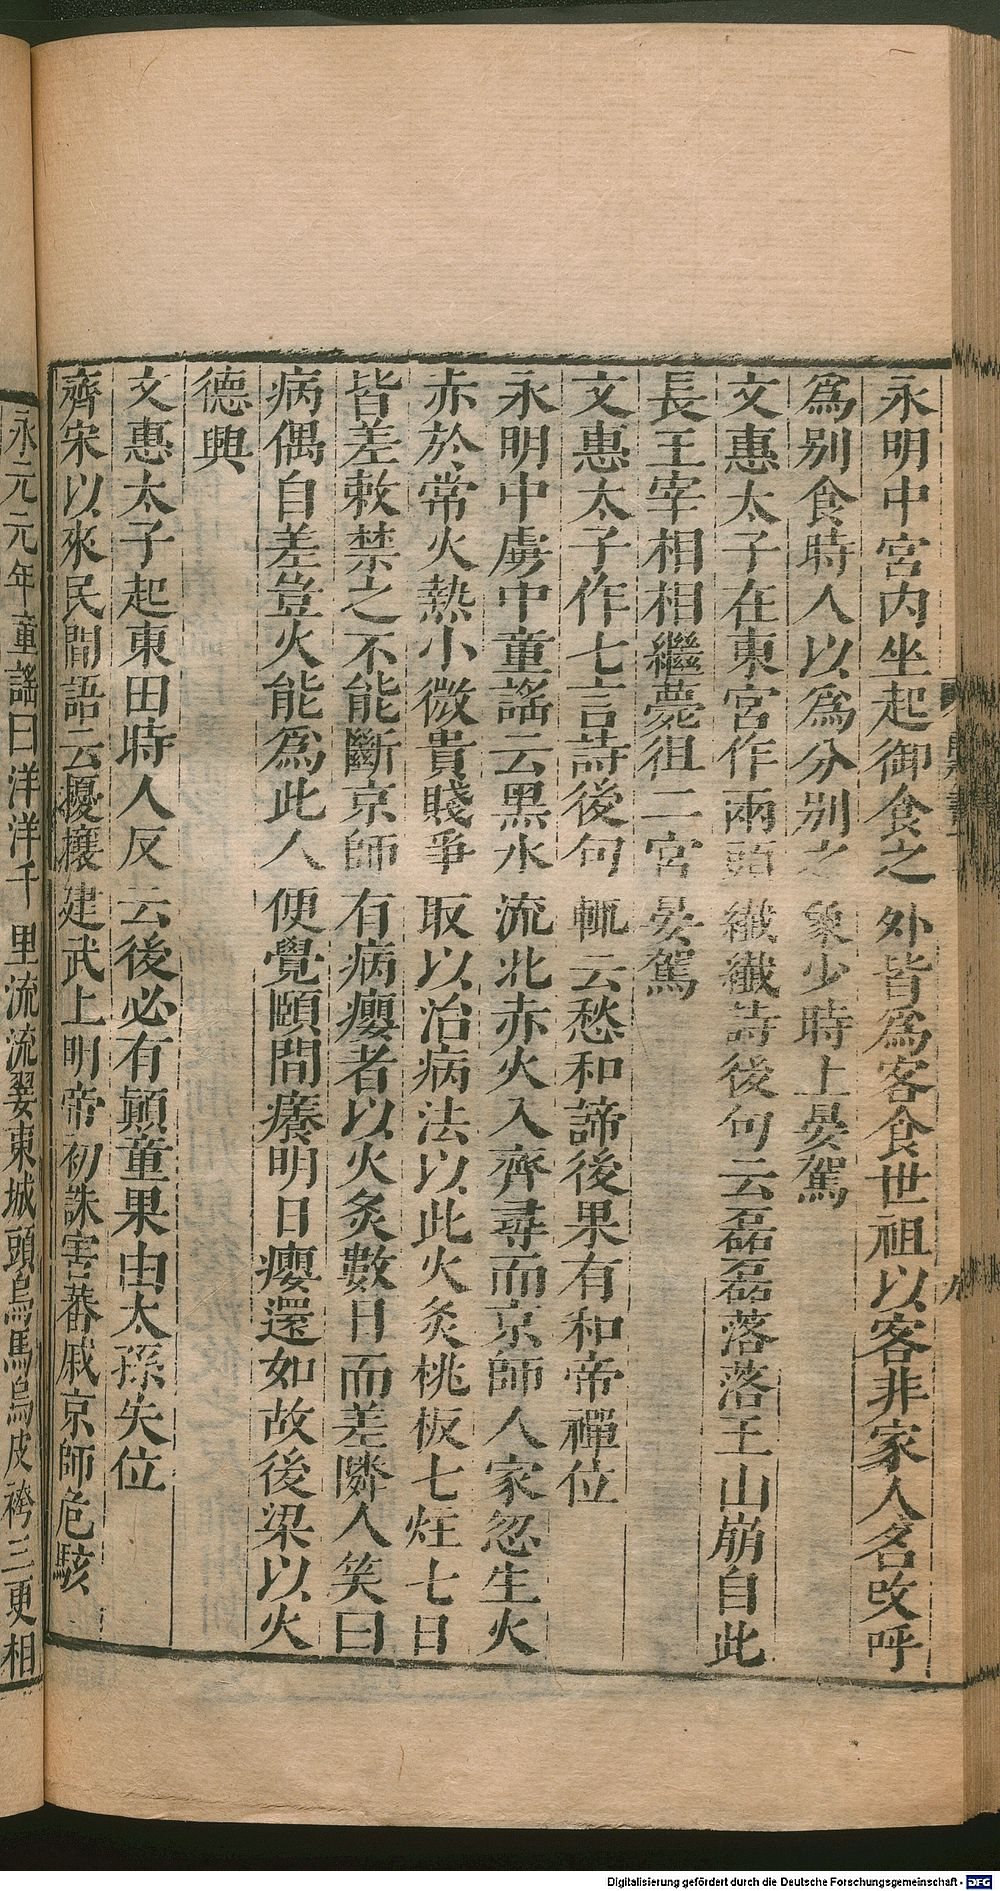 永明中宮內坐起御食之外皆爲客食世祖以客非家人名改呼
爲别食時人以爲分别之象少時上晏駕
文惠太子在東宮作兩頭纖纖詩後句云磊磊落落玉山崩自此
長王宰相相繼薨徂二宮晏駕
文惠太子作七言詩後句輒云愁和諦後果有和帝禪位
永明中虜中童謠云黑水流北赤火入齊尋而京師人家忽生火
赤於常火熱小微貴賤爭取以治病法以此火灸桃板七炷七日
皆差敕禁之不能斷京師有病癭者以火灸數日而差隣人笑曰
病偶自差豈火能爲此人便覺頤間癢明日癭還如故後梁以火
德興
文惠太子起東田時人反云後必有顛童果由太孫失位
齊宋以來民間語云擾攘建武上明帝初誅害蕃戚京師危駭
永元元年童謠曰洋洋千里流流翣東城頭烏馬烏皮袴三更相
Digitalisierung gefördert durch die Deutsche Forschungsgemeinschaft - DFG